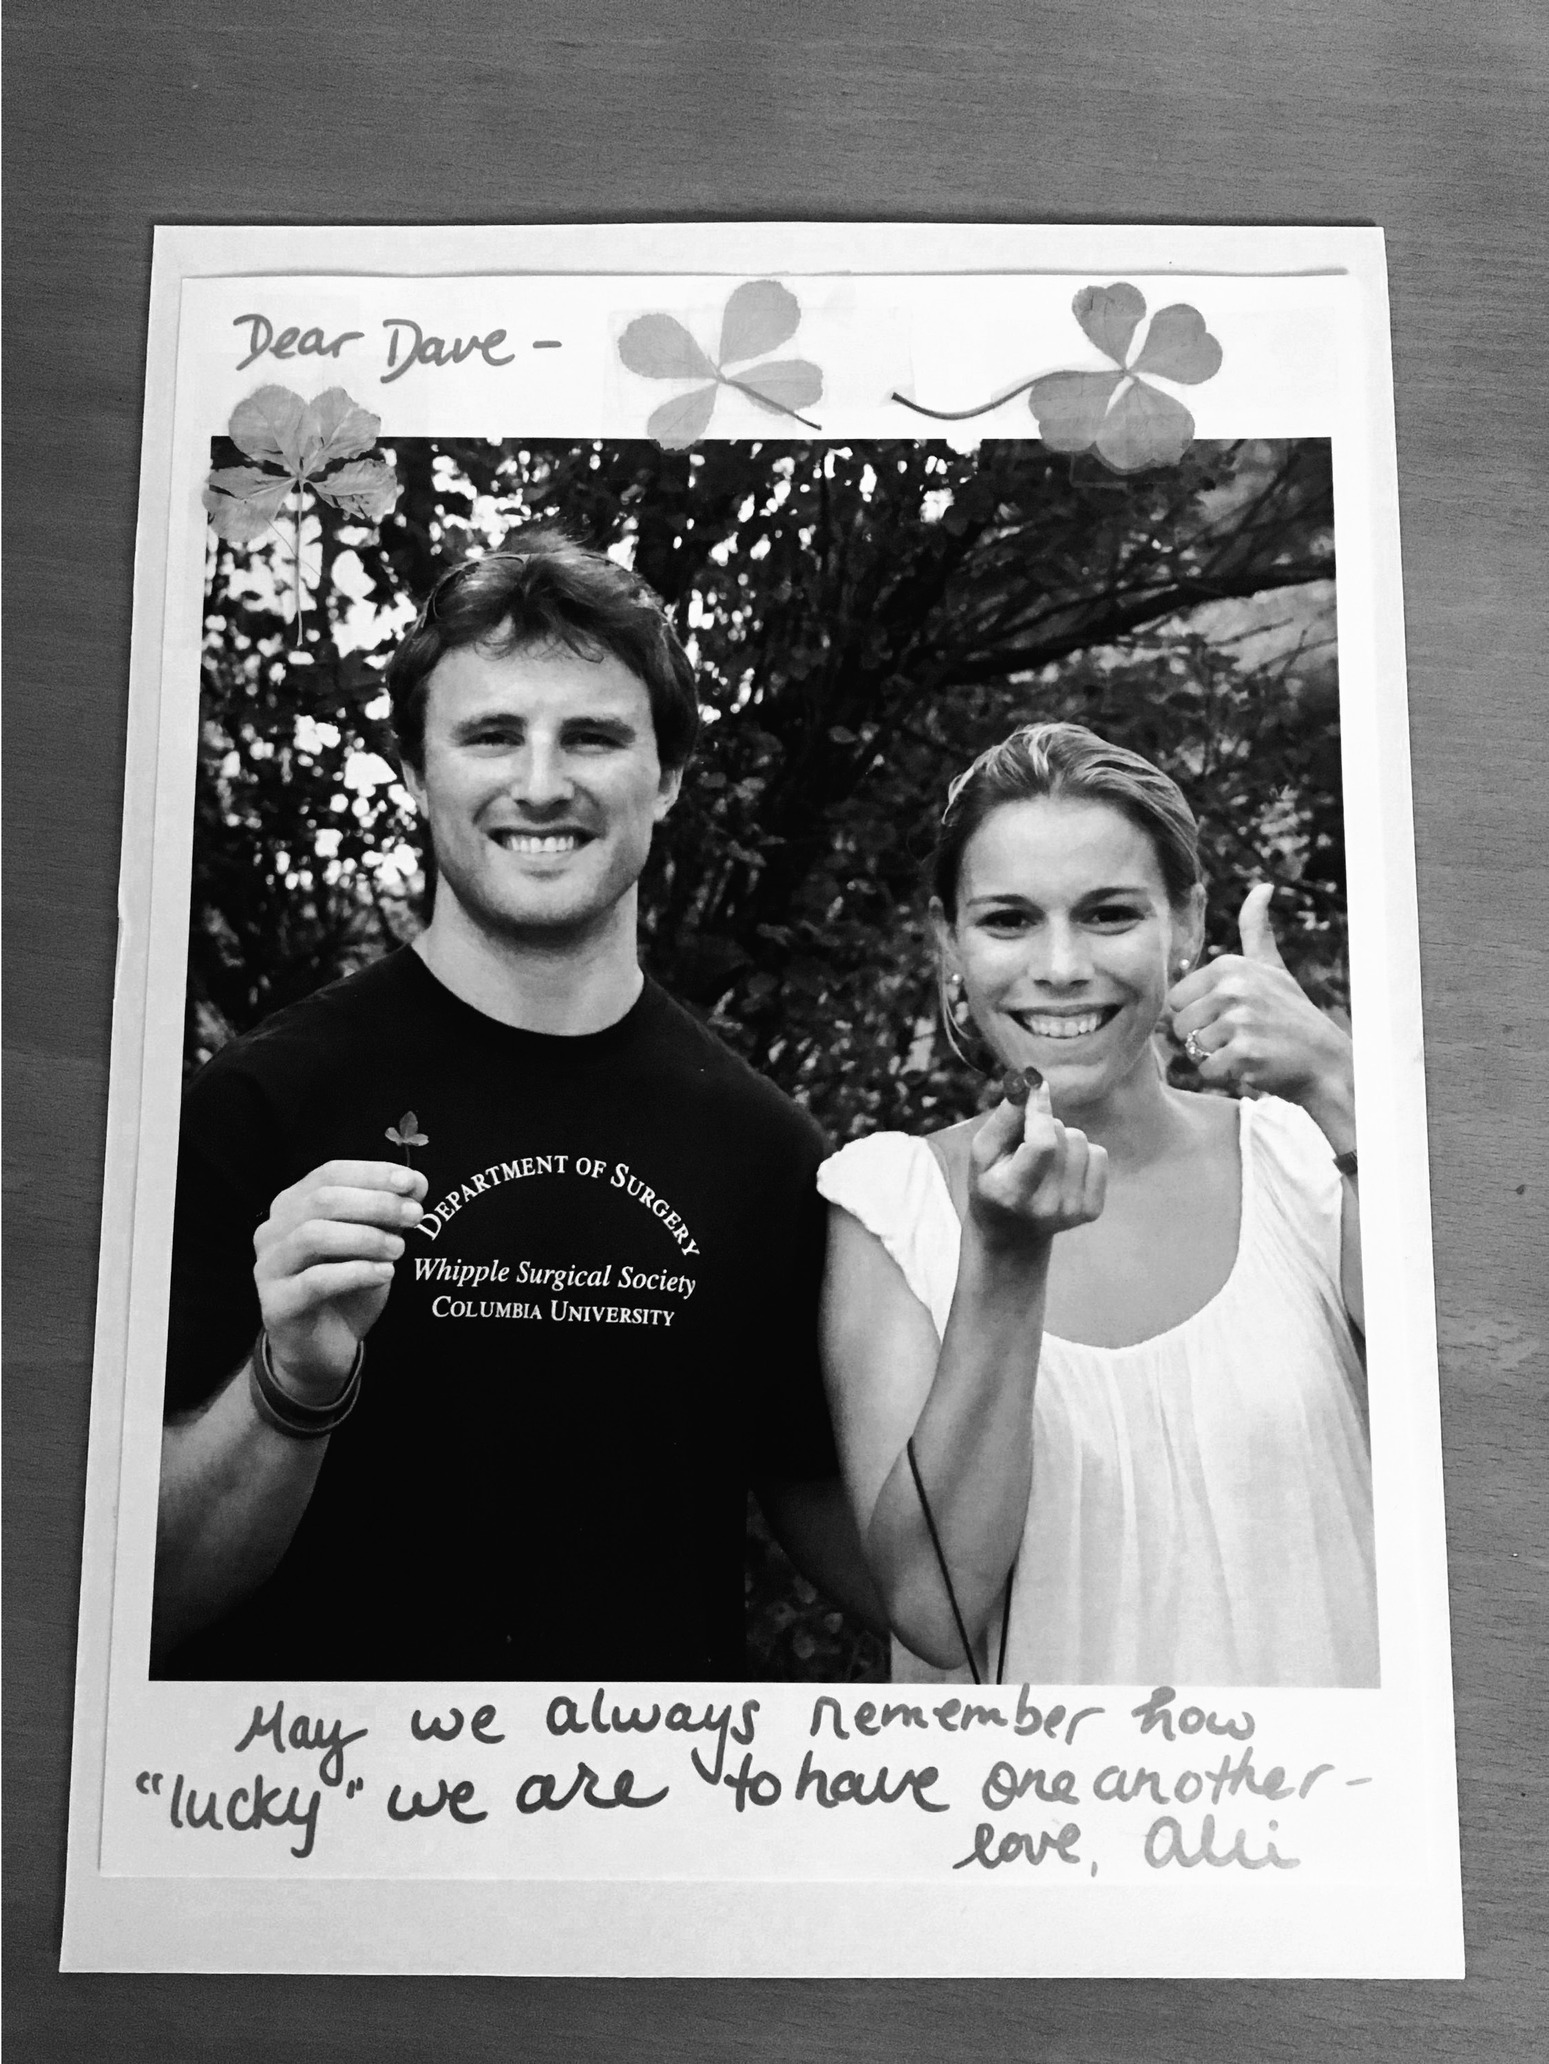 Dear Dave -
DEPARTMENT OF SURGERY
Whipple Surgical Society
COLUMBIA UNIVERSITY
May we always remember how
"lucky" we are to have one another -
love, Alli